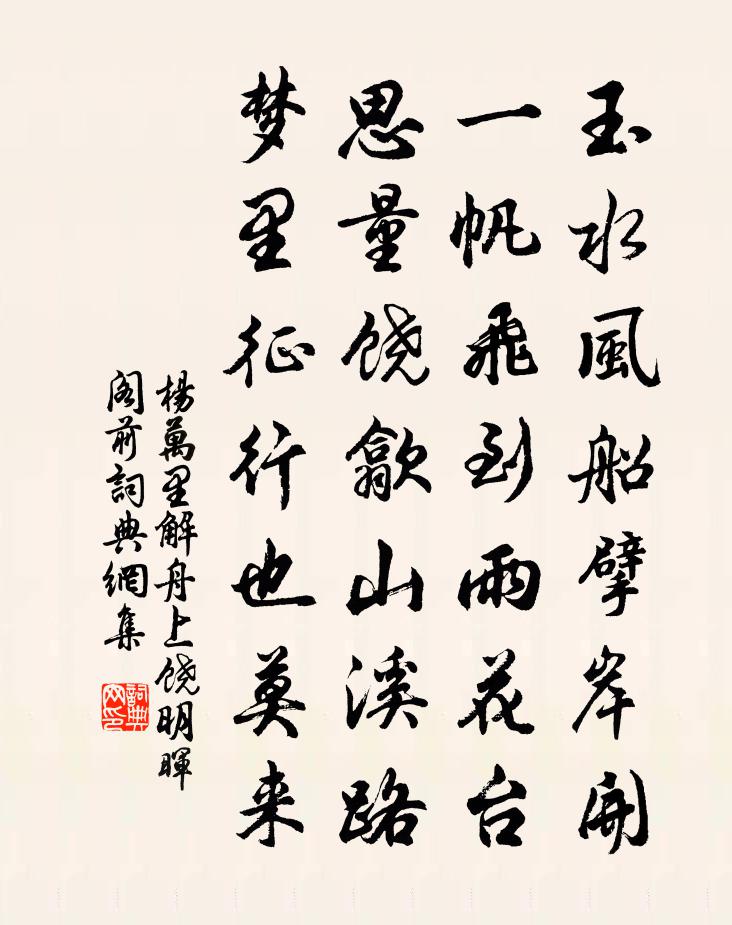 玉水風船擘岸開
一帆飛到雨花台
思量饶歙山溪路
梦里征行也莫来
楊萬里解舟上饶明暉
阁前詞典網集
詞典网印